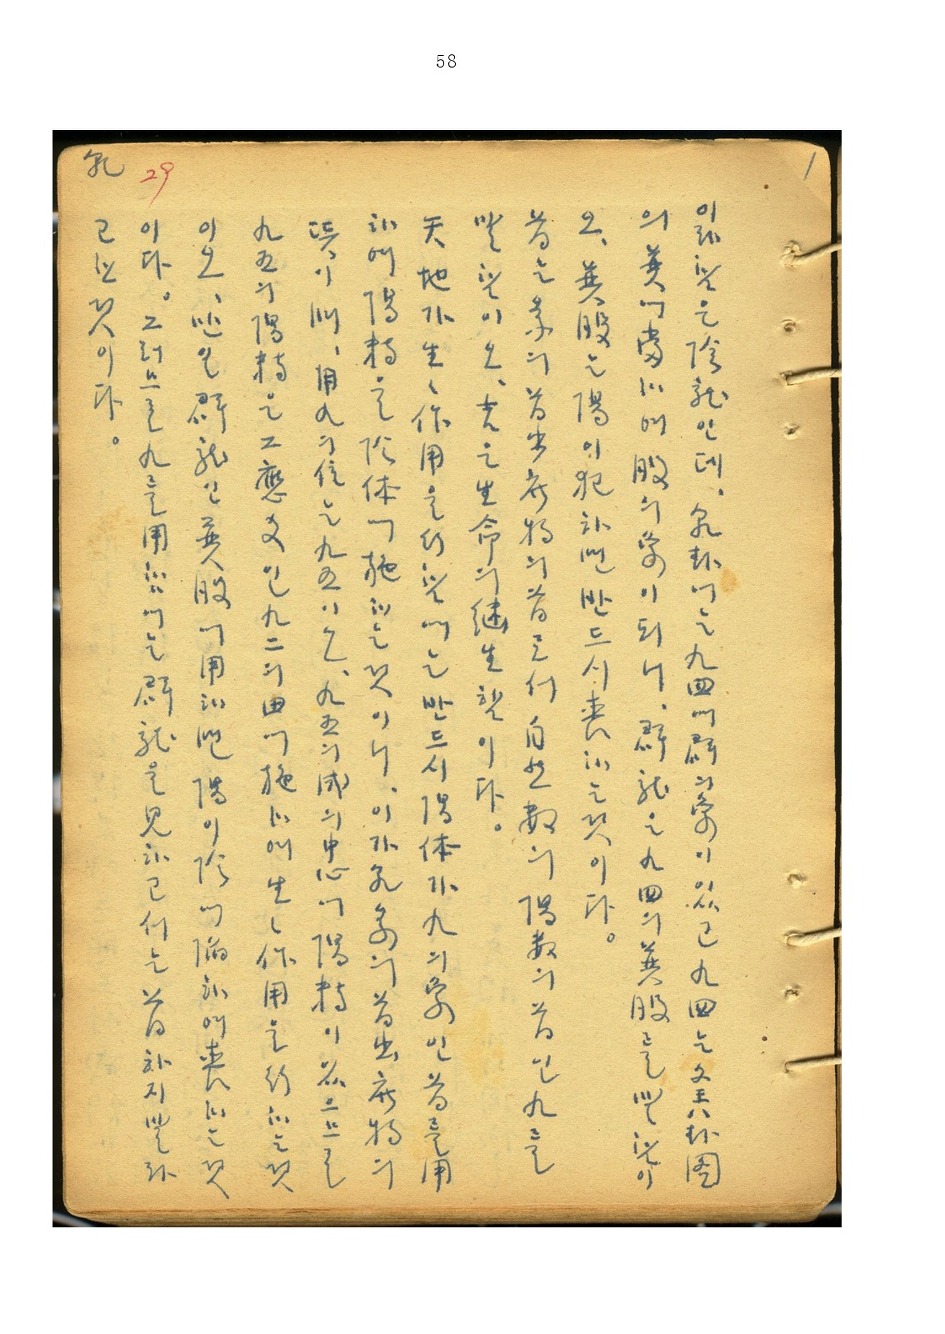 58
乾 29
이라 함은 陰龍인데, 乾卦에는 九四에 群의 象이 있고 九四는 文王八卦圖
의 巽에 當하여 股의 象이 되니, 群龍은 九四의 巽股를 말함이
오, 巽股는 陽이 犯하면 반드시 喪하는 것이다.
首는 象의 首出庶物의 首로서 自然數의 陽數의 首인 九를
말함이오, 吉은 生命의 継生함이다.
天地가 生生作用을 行함에는 반드시 陽体가 九의 象인 首를 用
하여 陽精을 陰体에 施하는 것이니, 이가 乾彖의 首出庶物의
뜻이며, 用九의 位는 九五이오, 九五의 中心에 陽精이 있으므로
九五의 陽精은 그 應爻인 九二의 田에 施하여 生生作用을 行하는 것
이오, 만일 群龍인 巽股에 用하면 陽이 陰에 陷하여 喪하는 것
이다. 그러므로 九를 用함에는 群龍을 見하고서는 首하지 말라
고 한 것이다.